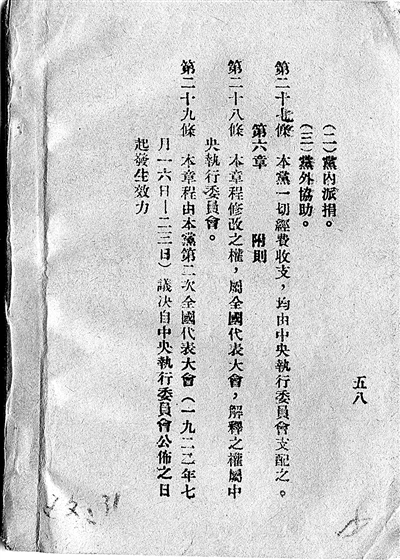 五八
(二)黨內派捐。
(三)黨外協助。
第二十七條　本黨一切經費收支，均由中央執行委員會支配之。
第六章　　附則
第二十八條　本章程修改之權，屬全國代表大會，解釋之權屬中
央執行委員會。
第二十九條　本章程由本黨第二次全國代表大會(一九二二年七
月一六日—二三日)議決自中央執行委員會公佈之日
起發生效力